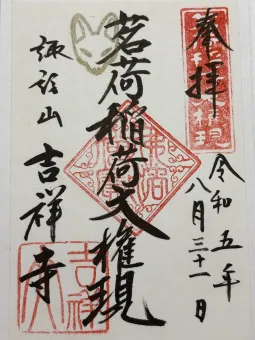 奉拝
令和五年
八月三十一日
茗荷稲荷大権現
諏訪山
吉祥寺